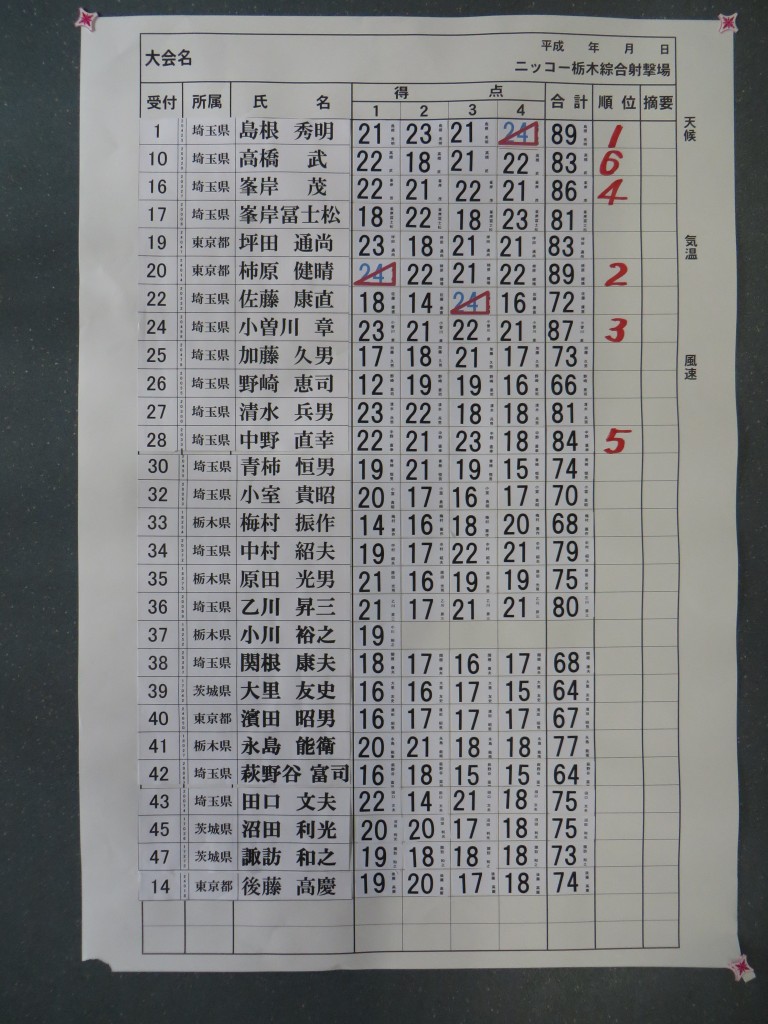 平成 年 月 日
大会名 ニッコー栃木綜合射撃場
受付 所属 氏 名 得 点 合計 順位 摘要
1 2 3 4
1 埼玉県 島根 秀明 21 23 21 24 89 1
10 埼玉県 高橋 武 22 18 21 22 83 6
16 埼玉県 峯岸 茂 22 21 22 21 86 4
17 埼玉県 峯岸冨士松 18 22 18 23 81
19 東京都 坪田 通尚 23 18 21 21 83
20 東京都 柿原 健晴 24 22 21 22 89 2
22 埼玉県 佐藤 康直 18 14 24 16 72
24 埼玉県 小曽川 章 23 21 22 21 87 3
25 埼玉県 加藤 久男 17 18 21 17 73
26 埼玉県 野崎 恵司 12 19 19 16 66
27 埼玉県 清水 兵男 23 22 18 18 81
28 埼玉県 中野 直幸 22 21 23 18 84 5
30 埼玉県 青柿 恒男 19 21 19 15 74
32 埼玉県 小室 貴昭 20 17 16 17 70
33 栃木県 梅村 振作 14 16 18 20 68
34 埼玉県 中村 紹夫 19 17 22 21 79
35 栃木県 原田 光男 21 16 19 19 75
36 埼玉県 乙川 昇三 21 17 21 21 80
37 栃木県 小川 裕之 19
38 埼玉県 関根 康夫 18 17 16 17 68
39 茨城県 大里 友史 16 16 17 15 64
40 東京都 濱田 昭男 16 17 17 17 67
41 栃木県 永島 能衛 20 21 18 18 77
42 埼玉県 萩野谷 富司 16 18 15 15 64
43 埼玉県 田口 文夫 22 14 21 18 75
45 茨城県 沼田 利光 20 20 17 18 75
47 茨城県 諏訪 和之 19 18 18 18 73
14 東京都 後藤 高慶 19 20 17 18 74
天候
気温
風速